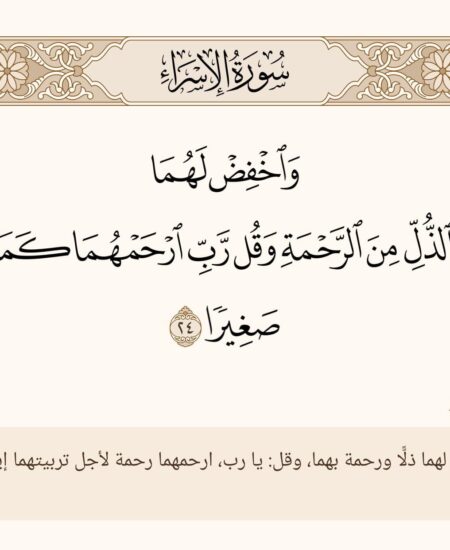 سُورَةُ الإِسْرَاءِ
وَٱخْفِضْ لَهُمَا
ٱلذُّلِّ مِنَ ٱلرَّحْمَةِ وَقُل رَّبِّ ٱرْحَمْهُمَا كَمَا
صَغِيرًا ٢٤
لهما ذلًّا ورحمة بهما، وقل: يا رب، ارحمهما رحمة لأجل تربيتهما